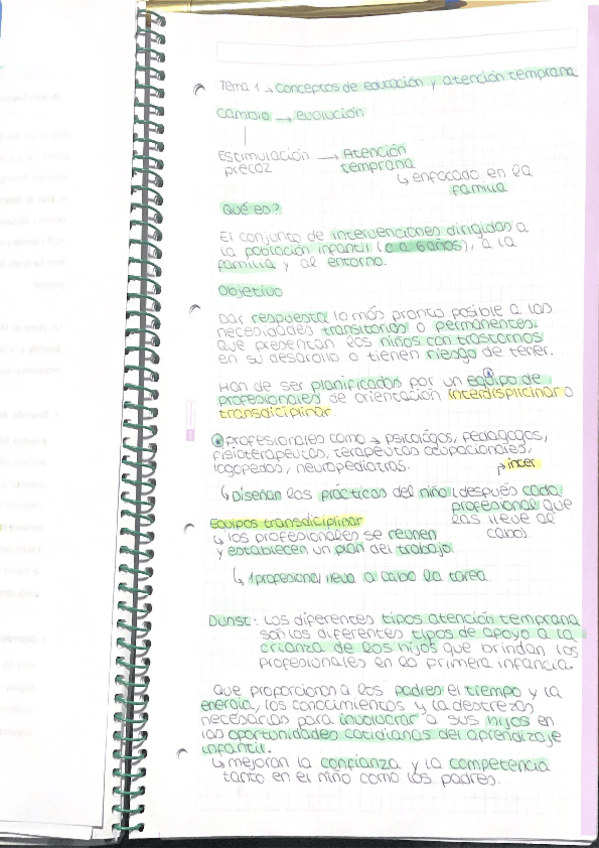 Tema 1 → conceptos de educación y atención temprana
cambio → evolución
Estimulación → Atención
precoz temprana
↳ enfocado en la
familia
Qué es?
El conjunto de intervenciones dirigidas a
la población infantil (0 a 6 años), a la
familia y al entorno.
Objetivo
Dar respuesta lo más pronto posible a las
necesidades transitorias o permanentes.
que presentan los niños con trastornos
en su desarollo o tienen riesgo de tener.
Han de ser planificados por un equipo de
profesionales de orientación interdisplicinar o
transdiciplinar.
profesionales como → psicólogos, pedagogos,
fisioterapeutas, terapeutas ocupacionales,
logopedas, neuropediatras.
↳ inter
↳ Diseñan las prácticas del niño (después cada
profesional que
las lleve al
cabo).
Equipos transdiciplinar
↳ los profesionales se reunen
y establecen un plan del trabajo.
↳ 1 profesional lleva a cabo la tarea.
Dunst: Los diferentes tipos atención temprana
son los diferentes tipos de apoyo a la
crianza de los hijos que brindan los
profesionales en la primera infancia.
Que proporciona a los padres el tiempo y la
energía, los conocimientos y la destrezas
necesarias para involucrar a sus hijos en
las oportunidades cotidianas del aprendizaje
infantil.
↳ mejoran la confianza y la competencia
tanto en el niño como los padres.